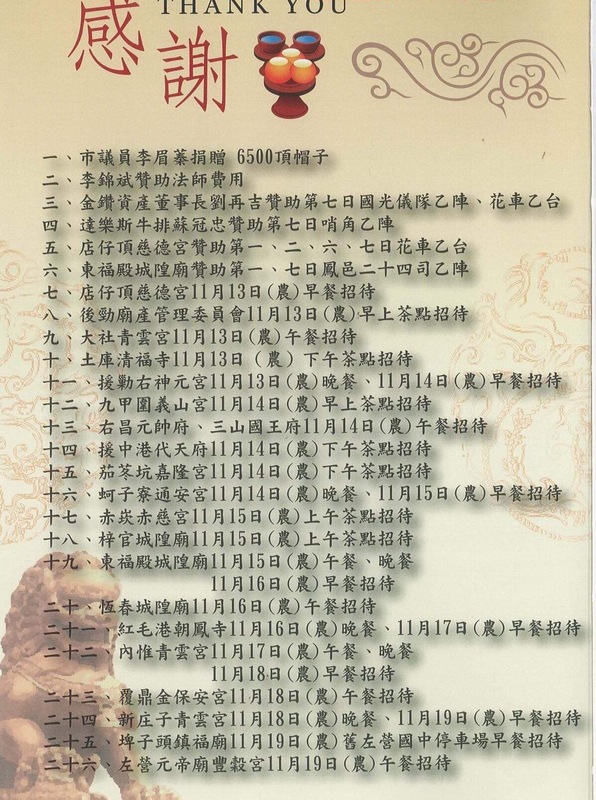 THANK YOU
感謝
一、市議員李眉蓁捐贈 6500頂帽子
二、李錦斌贊助法師費用
三、金鑽資產董事長劉再吉贊助第七日國光儀隊乙陣、花車乙台
四、達樂斯牛排蘇冠忠贊助第七日哨角乙陣
五、店仔頂慈德宮贊助第一、二、六、七日花車乙台
六、東福殿城隍廟贊助第一、七日鳳邑二十四司乙陣
七、店仔頂慈德宮11月13日(農)早餐招待
八、後勁廟產管理委員會11月13日(農)早上茶點招待
九、大社青雲宮11月13日(農)午餐招待
十、土庫清福寺11月13日（農）下午茶點招待
十一、援勦右神元宮11月13日(農)晚餐、11月14日(農)早餐招待
十二、九甲圍義山宮11月14日(農)早上茶點招待
十三、右昌元帥府、三山國王府11月14日(農)午餐招待
十四、援中港代天府11月14日(農)下午茶點招待
十五、茄苳坑嘉隆宮11月14日(農)下午茶點招待
十六、蚵子寮通安宮11月14日(農)晚餐、11月15日(農)早餐招待
十七、赤崁赤慈宮11月15日(農)上午茶點招待
十八、梓官城隍廟11月15日(農)上午茶點招待
十九、東福殿城隍廟11月15日(農)午餐、晚餐
11月16日(農)早餐招待
二十、恆春城隍廟11月16日(農)午餐招待
二十一、紅毛港朝鳳寺11月16日(農)晚餐、11月17日(農)早餐招待
二十二、內惟青雲宮11月17日(農)午餐、晚餐
11月18日(農)早餐招待
二十三、覆鼎金保安宮11月18日(農)午餐招待
二十四、新庄子青雲宮11月18日(農)晚餐、11月19日(農)早餐招待
二十五、埤子頭鎮福廟11月19日(農)舊左營國中停車場早餐招待
二十六、左營元帝廟豐穀宮11月19日(農)午餐招待